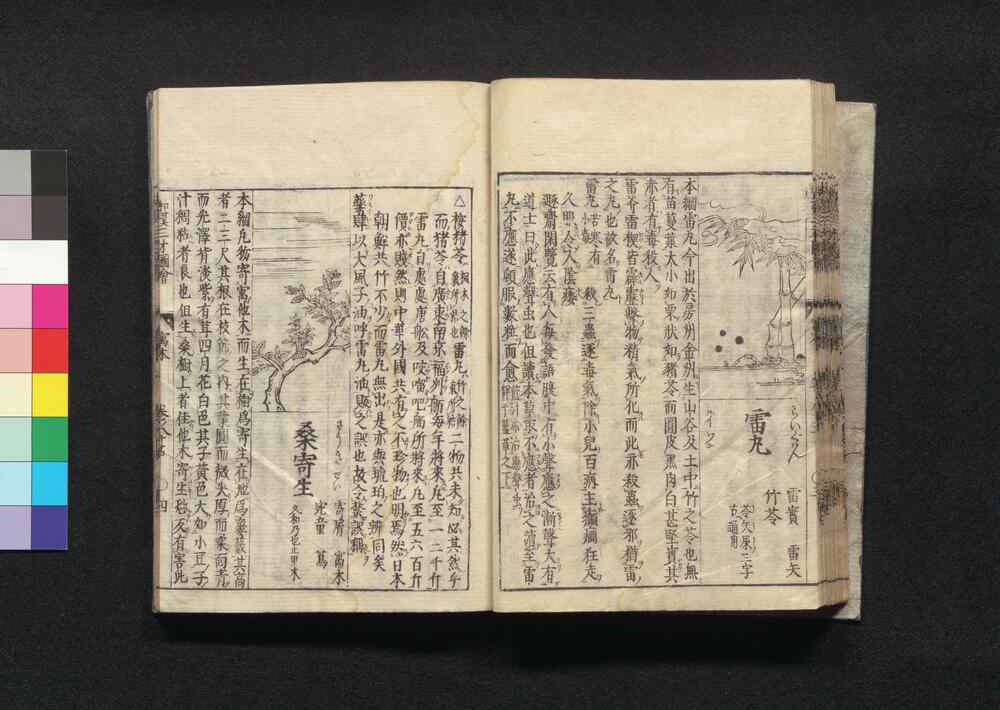 らいぐわん
雷丸
雷實 雷矢
竹苓
本綱雷丸今出於房州金州生山谷及土中竹之苓也無
有苗蔓葉大小如栗狀如猪苓而圓皮黑肉白甚堅實其
赤者有毒殺人
雷斧雷楔皆霹靂擊物精氣所化而此亦殺蟲逐邪猶雷
之丸也故名雷丸
雷丸 苦寒有小毒 殺三蟲逐毒氣除小兒百病主癲癇狂走
久服令人陰痿
遯齋閑覽云有人每發語腹中有小聲應之漸聲大有
道士曰此應聲蟲也但讀本草取不應者治之讀至雷
丸不應遂頓服數粒而愈
△按猪苓 雷丸 二物共未知其然乎
而猪苓自廣東南京福州每年將來凡至一二千斤
雷丸自處處唐舩及咬𠺕吧將來凡至五六百斤
價亦賤然則中華外國共有之不珍物也明焉然日本
朝鮮共竹不少而雷丸無出是亦與琥珀之辨同矣
藥肆以大風子油呼雷丸油販之誤也故今禁誤稱
桑寄生
寄屑 寓木
宛童 蔦
本綱凡物寄寓他木而生在樹爲寄生在地爲窶藪其高
者二三尺其根在枝節之內其葉圓而微尖厚而柔面青
而光澤背淡紫有茸四月花白色其子黃色大如小豆子
汁稠粘者良也但生桑樹上者佳他木寄生恐反有害此